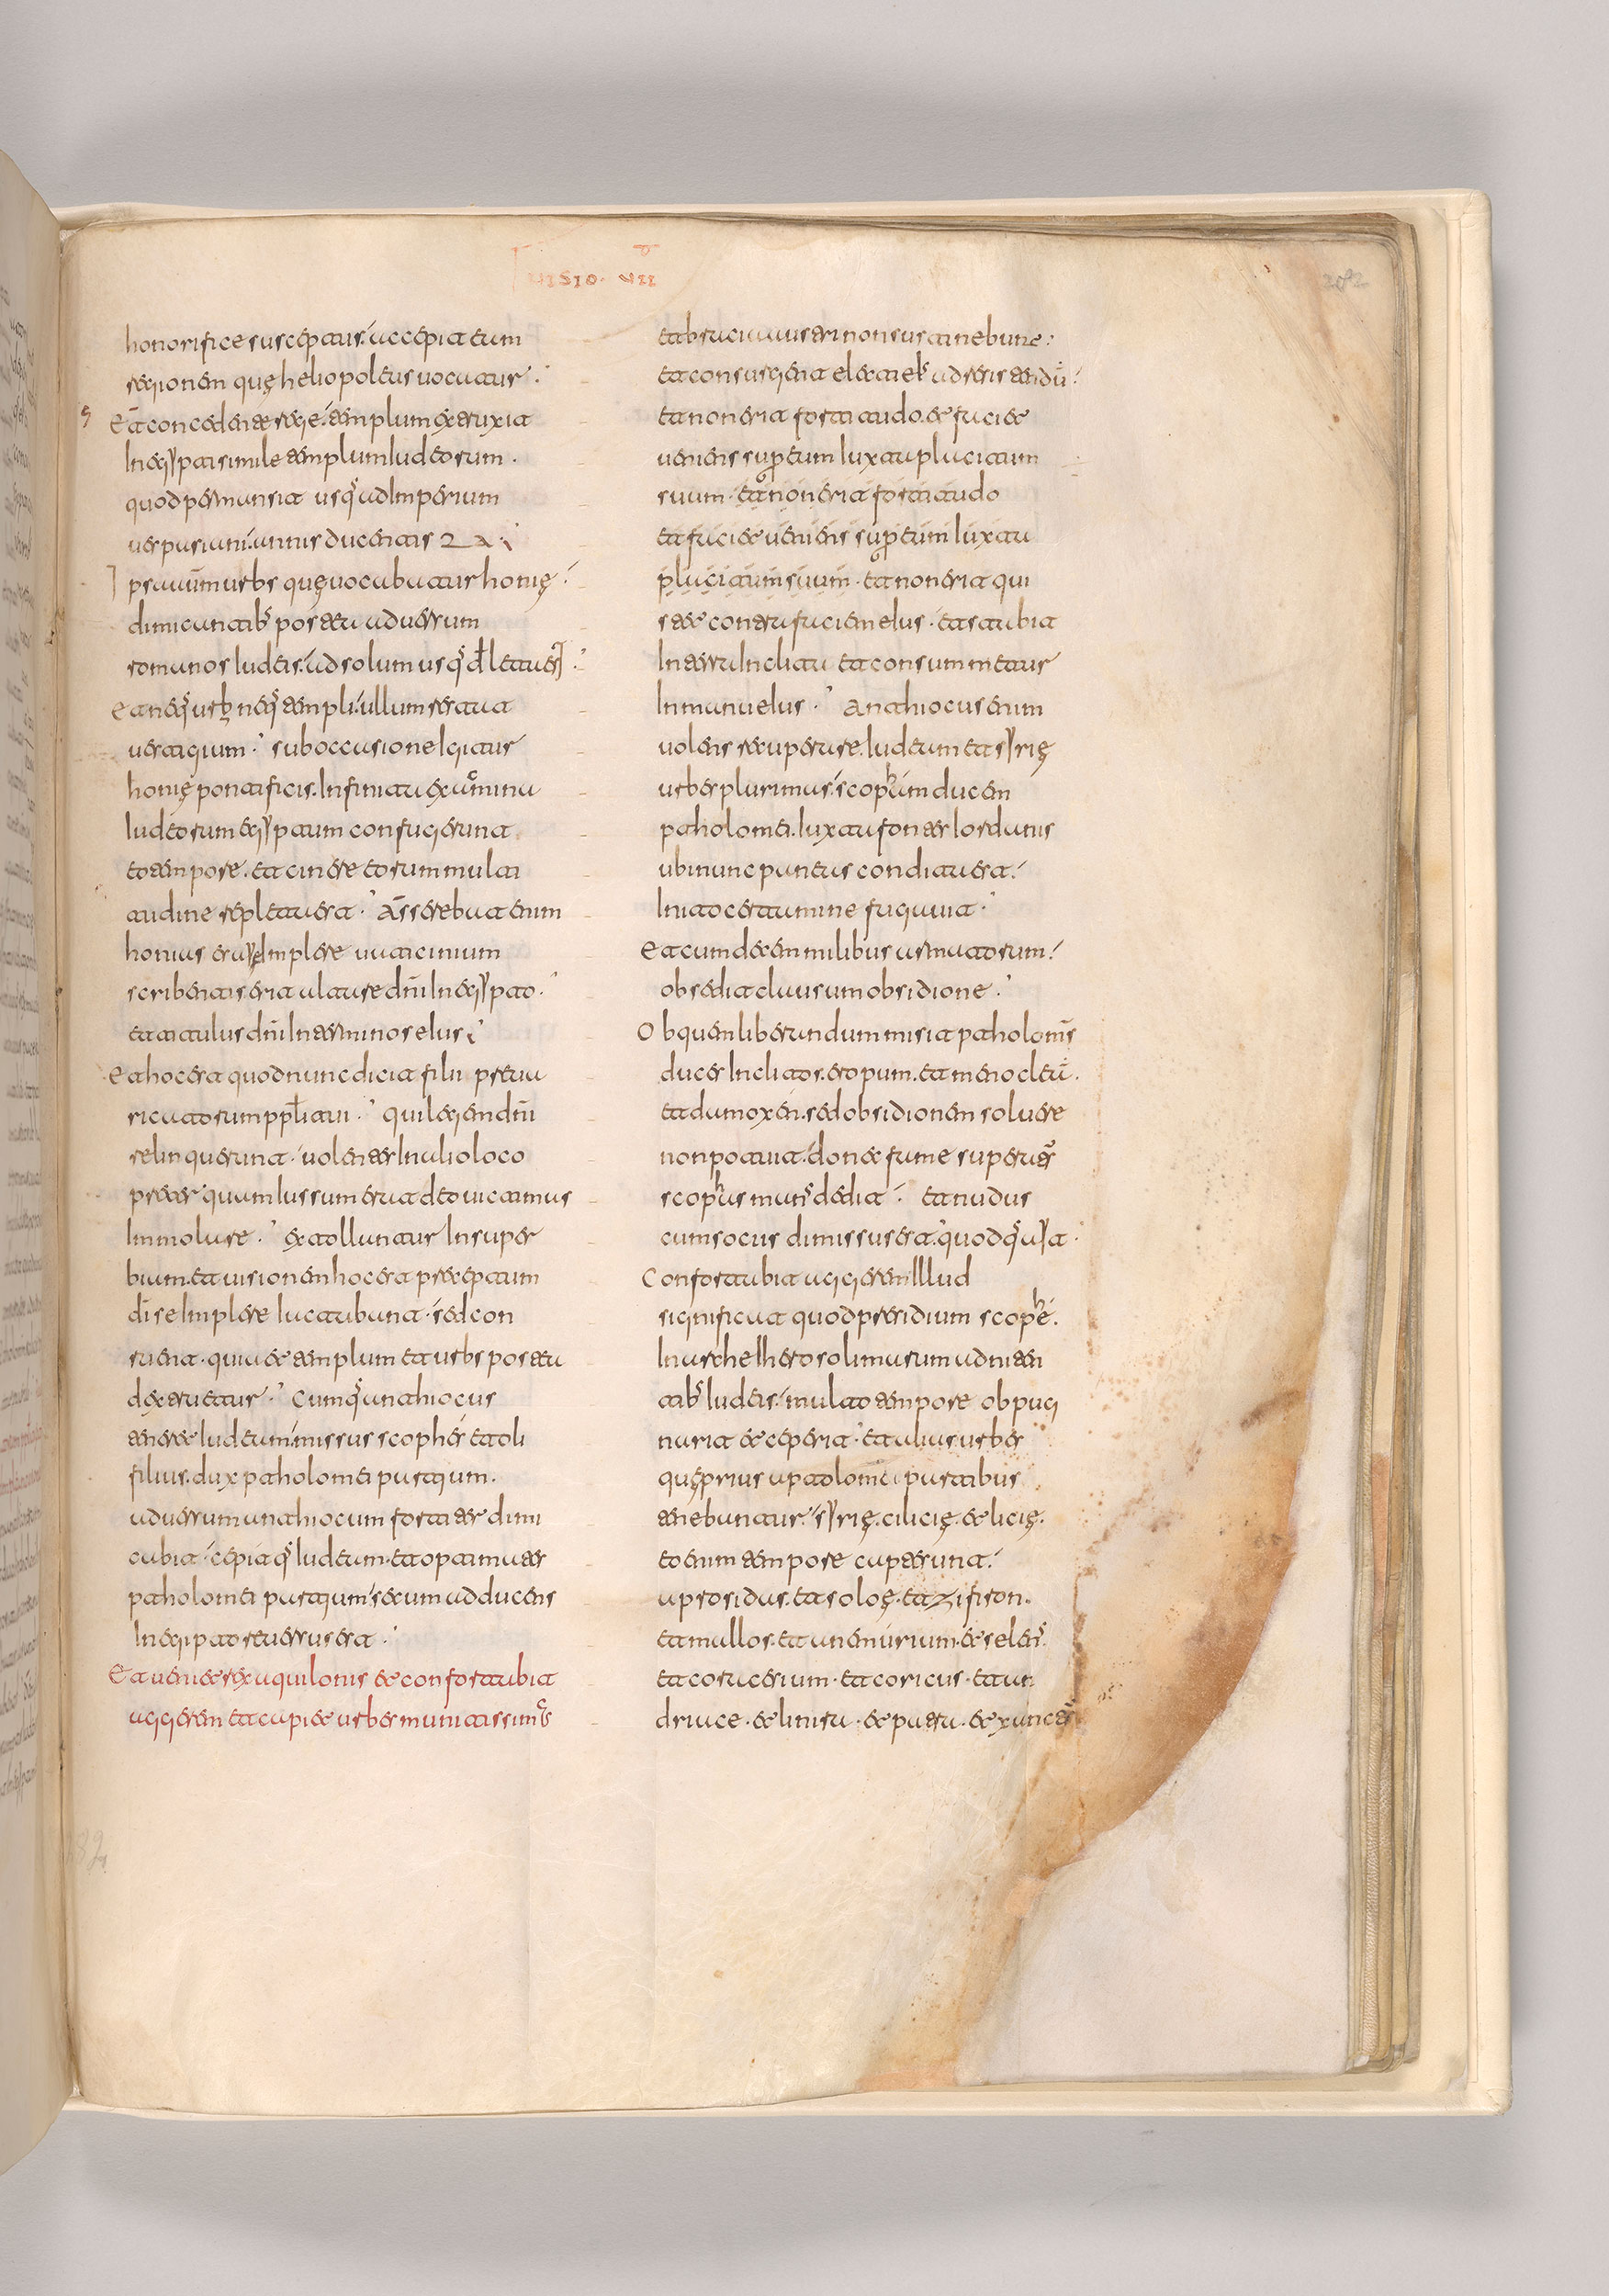 visio · vii
honorifice susceptus. accepit eum
regionem quę heliopoleos vocatur.
Et concedente rege. templum extruxit
In egypto simile templum Iudeorum.
quod permansit usq ad Imperium
vespasiani. annis ducentis
Ipsa autem urbs quę vocabatur honię.
dimicantib postea adversum
romanos Iudeis. ad solum usq deleta est.
Et neq urb neq templi. ullum servat
vestigium. sub occasione Igitur
honię pontificis. Infinita examina
Iudeorum egyptum confugerunt
eo tempore. et cinere eorum mul ti
tudine repleta est. asserebat enim
honias
scribentis erit altare dni In egypto.
et titulus dni In terminos eius.
Et hoc est quod nunc dicit filii preva
ricatorum ppli tui. qui legem dni
relinquerunt. volentes In alio loco
preter quam Iussum erat deo victimas
Immolare. Extolluntur In super
biam. et visionem hoc est preceptum
di se Implere Iactabunt. sed con
ruent. quia et templum et urbs postea
dextruetur. Cumq antiochus
teneret Iudeam. missus scopher etoli
filius. dux ptholomei partium.
adversum antiochum fortiter dimi
cabit. cepitq Iudeam. et optimates
ptholomei partium. secum adducens
In egipto reversus est.
Et veniet rex aquilonis et confortabit
aggerem et capiet urbes munitissimas
et bracia austri non sustinebunt.
et consurgent electi ei ad resistendum.
et non erit fortitudo. et faciet
veniens super eum Iuxta placitum
suum. et non erit fortitudo
et faciet veniens super eum Iuxta
placitum suum. et non erit qui
stet contra faciem eius. et stabit
In terra Inclita et consummetur
In manu eius. Antiochus enim
volens recuperare. Iudeam et syrię
urbes plurimas. scopham ducem
ptholomei. Iuxta fontes Iordanis
ubi nunc paneas condita est.
Inito certamine fugavit.
Et cum decem milibus armatorum.
obsedit clausum obsidione.
Ob quem liberandum misit ptholoms
duces Inclitos. eropum. et menocleum.
et damoxen. sed obsidionem solvere
non potuit. donec fame superatus
scophas manus dedit. et nudus
cum sociis dimissus est. quod q ait
Confortabit aggerem. Illud
significat quod presidium scophe.
In arche Iherosolimarum adniten
tib Iudeis. multo tempore obpug
narit et ceperit. et alias urbes
quę prius a ptolomei partibus
tenebantur. syrię. cilicię. et licię.
eo enim tempore captę sunt.
aprosidas. et soloę. et zifiron.
et mallos. et anemurium. et selens
et coracesium. et coricus. et an
driace. et limira. et patara. et xantus